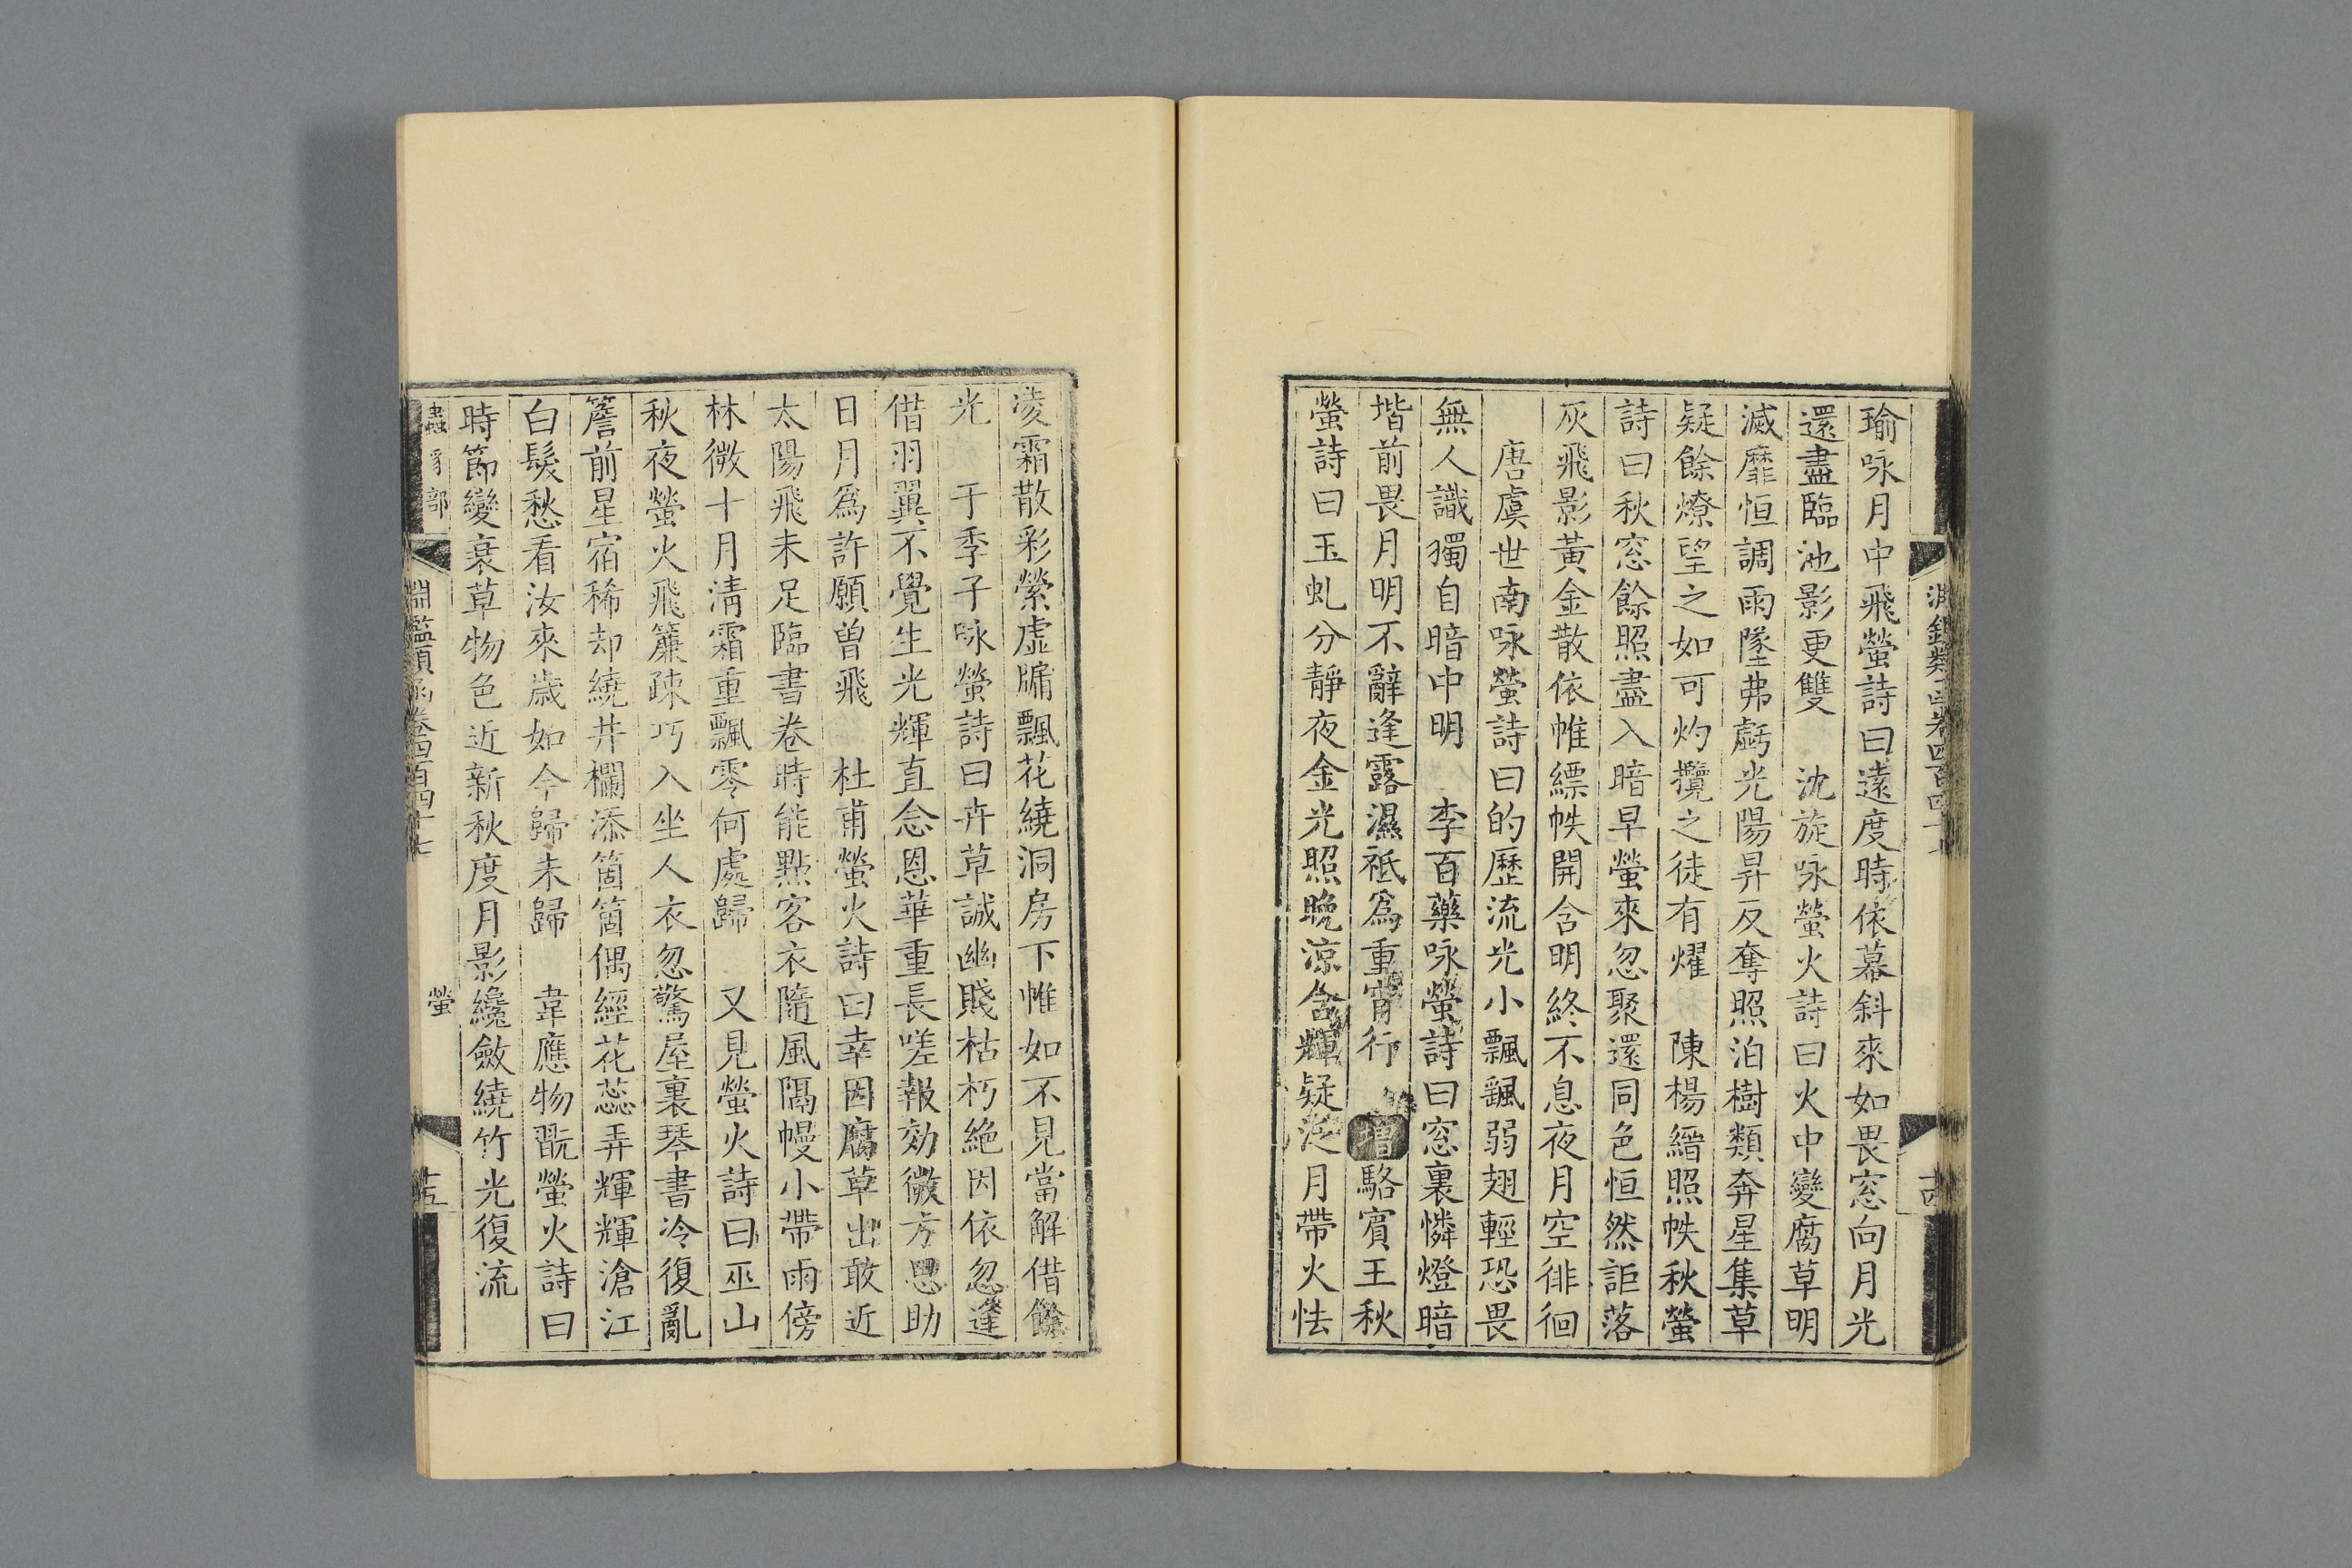 瑜咏月中飛螢詩曰遠度時依幕斜來如畏窓向月光
還盡臨池影更雙　沈旋咏螢火詩曰火中變腐草明
滅靡恒調雨墜弗虧光陽昇反奪照泊樹類奔星集草
疑餘燎望之如可灼攬之徒有燿　陳楊縉照帙秋螢
詩曰秋窓餘照盡入暗早螢來忽聚還同色恒然詎落
灰飛影黃金散依帷縹帙開含明終不息夜月空徘徊
唐虞世南咏螢詩曰的歷流光小飄颻弱翅輕恐畏
無人識獨自暗中明　李百藥咏螢詩曰窓裏憐燈暗
堦前畏月明不辭逢露濕祗爲重宵行　增駱賓王秋
螢詩曰玉虬分靜夜金光照晚涼含輝疑泛月帶火怯
淩霜散彩縈虛牖飄花繞洞房下帷如不見當解借餘
光　于季子咏螢詩曰卉草誠幽賤枯朽絶因依忽逢
借羽翼不覺生光輝直念恩華重長嗟報効微方思助
日月爲許願曾飛　杜甫螢火詩曰幸因腐草出敢近
太陽飛未足臨書卷時能點客衣隨風隔幔小帶雨傍
林微十月淸霜重飄零何處歸　又見螢火詩曰巫山
秋夜螢火飛簾疎巧入坐人衣忽驚屋裏琴書冷復亂
簷前星宿稀却繞井欄添箇箇偶經花蕊弄輝輝滄江
白髮愁看汝來歳如今歸未歸　韋應物翫螢火詩曰
時節變衰草物色近新秋度月影纔斂繞竹光復流
蟲豸部
淵鑑類函卷四百四十七
螢
十五